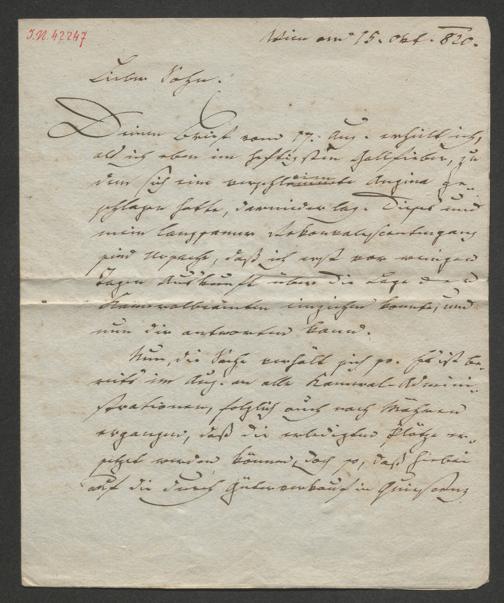 I.N. 42247
Wien am 15. Okt. 820.
Lieber Sohn.
Deinen Brief vom 27. Aug. erhielt ich,
als ich eben im heftigsten Gallfieber, zu
dem sich eine Angina ge-
schlagen hatte, darnieder lag. Dieses und
mein langsamer Rekonvalescentengang
sind Ursache, daß ich erst vor wenigen
Tagen Auskunft über die Lage der
Kameralbeamten einziehen konnte, und
nun dir antworten kann.
Nun, die Sache verhält sich so. Es ist be-
reits im Aug. an alle Kameral-Admini-
strationen, folglich auch nach Mähren
ergangen, daß die erledigten Plätze er-
setzt werden können, doch so, daß hiebei
auf die durch Güterverkauf in Quiescenz